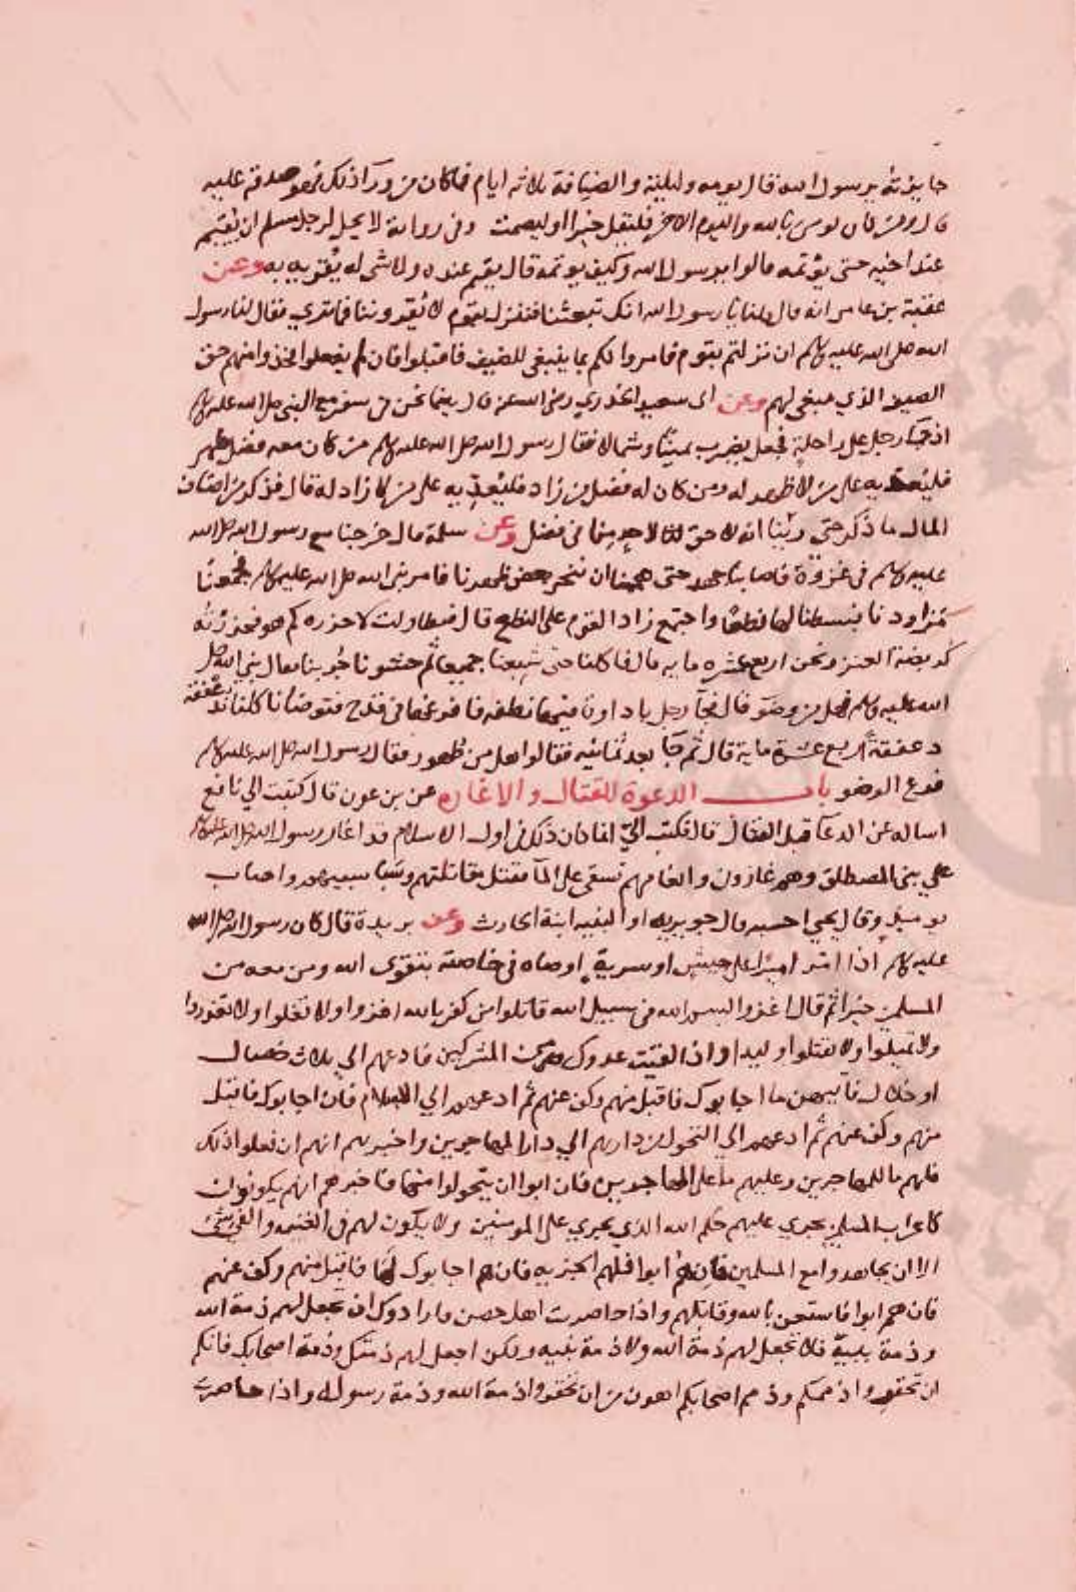 جايزته يرسول الله قال يومه وليلته والضيافة ثلاثه ايام فماكان من ورآ ذلك فهو صدقة عليه
قال ومن كان يومن بالله واليوم الاخر فليقل خيرا او ليصمت وفي رواية لا يحل لرجل مسلم ان يقيم
عند اخيه حتى يؤثمه قالوا يرسول الله وكيف يوثمه قال يقيم عنده ولا شي له يقريه به وعن
عقبة بن عامر انه قال قلنا يا رسول الله انك تبعثنا فننزل بقوم لا يقروننا فما ترى فقال لنا رسول
الله صلى الله عليه وسلم ان نزلتم بقوم فامروا لكم بما ينبغي للضيف فاقبلوا فان لم يفعلوا فخذوا منهم حق
الضيف الذي ينبغي لهم وعن ابى سعيد الخدري رضى الله عنه قال بينما نحن في سفر مع النبي صلى الله عليه وسلم
اذ جآ رجل على راحلة فجعل يضرب يمينا وشمالا فقال رسول الله صلى الله عليه وسلم من كان معه فضل ظهر
فليعد به على من لا ظهر له ومن كان له فضل من زاد فليعد به على من لا زاد له قال فذكر من اصناف
المال ما ذكر حتى رئينا انه لا حق لاحد منا في فضل وعن سلمة قال خرجنا مع رسول الله صلى الله
عليه وسلم في غزوة فاصابنا جهد حتى هممنا ان ننحر بعض ظهرنا فامر نبى الله صلى الله عليه وسلم فجمعنا
مزاودنا فبسطنا لها نطعا واجتمع زاد القوم على النطع قال فتطاولت لاحزره كم هو فحزرته
كربضة العنز ونحن اربع عشره مايه قال فاكلنا حتى شبعنا جميعا ثم حشونا جربنا فقال نبي الله صلى
الله عليه وسلم فهل من وضو قال فجآ رجل باداوة فيها نطفه فافرغها في قدح فتوضانا كلنا ندغفقه
دغفقة اربع عشرة ماية قال ثم جآ بعد ثمانيه فقالوا هل من طهور فقال رسول الله صلى الله عليه وسلم
فرغ الوضو باب الدعوة للقتال والاغاره عن بن عون قال كتبت الي نافع
اساله عن الدعآ قبل القتال قال فكتب اليّ انما كان ذلك في اول الاسلام قد اغار رسول الله صلى الله عليه وسلم
علي بني المصطلق وهم غارون وانعامهم تسقى على المآ فقتل مقاتلتهم وسبا سبيهم واصاب
يوميذ وقال يحيى احسبه قال جويريه او البتيه ابنة الحارث وعن بريدة قال كان رسول الله صلى الله
عليه وسلم اذا امر اميرا على جيش او سرية اوصاه في خاصته بتقوى الله ومن معه من
المسلمين خيرا ثم قال اغزوا بسم الله في سبيل الله قاتلوا من كفر بالله اغزوا ولا تغلوا ولا تغدروا
ولا تمثلوا ولا تقتلوا وليدا واذا لقيت عدوك من المشركين فادعهم الي ثلاث خصال
او خلال فايتهن ما اجابوك فاقبل منهم وكف عنهم ثم ادعهم الي الاسلام فان اجابوك فاقبل
منهم وكف عنهم ثم ادعهم الي التحول من دارهم الي دار المهاجرين واخبرهم انهم ان فعلوا ذلك
فلهم ما للمهاجرين وعليهم ما على المهاجرين فان ابوا ان يتحولوا منها فاخبرهم انهم يكونون
كاعراب المسلمين يجري عليهم حكم الله الذي يجري على المومنين ولا يكون لهم في الغنيمه والفي شي
الا ان يجاهدوا مع المسلمين فان هم ابوا فسلهم الجزيه فان هم اجابوك لها فاقبل منهم وكف عنهم
فان هم ابوا فاستعن بالله وقاتلهم واذا حاصرت اهل حصن فارادوك ان تجعل لهم ذمة الله
وذمة نبيه فلا تجعل لهم ذمة الله ولا ذمة نبيه ولكن اجعل لهم ذمتك وذمة اصحابك فانكم
ان تخفروا ذممكم وذمم اصحابكم اهون من ان تخفروا ذمة الله وذمة رسوله واذا حاصرت